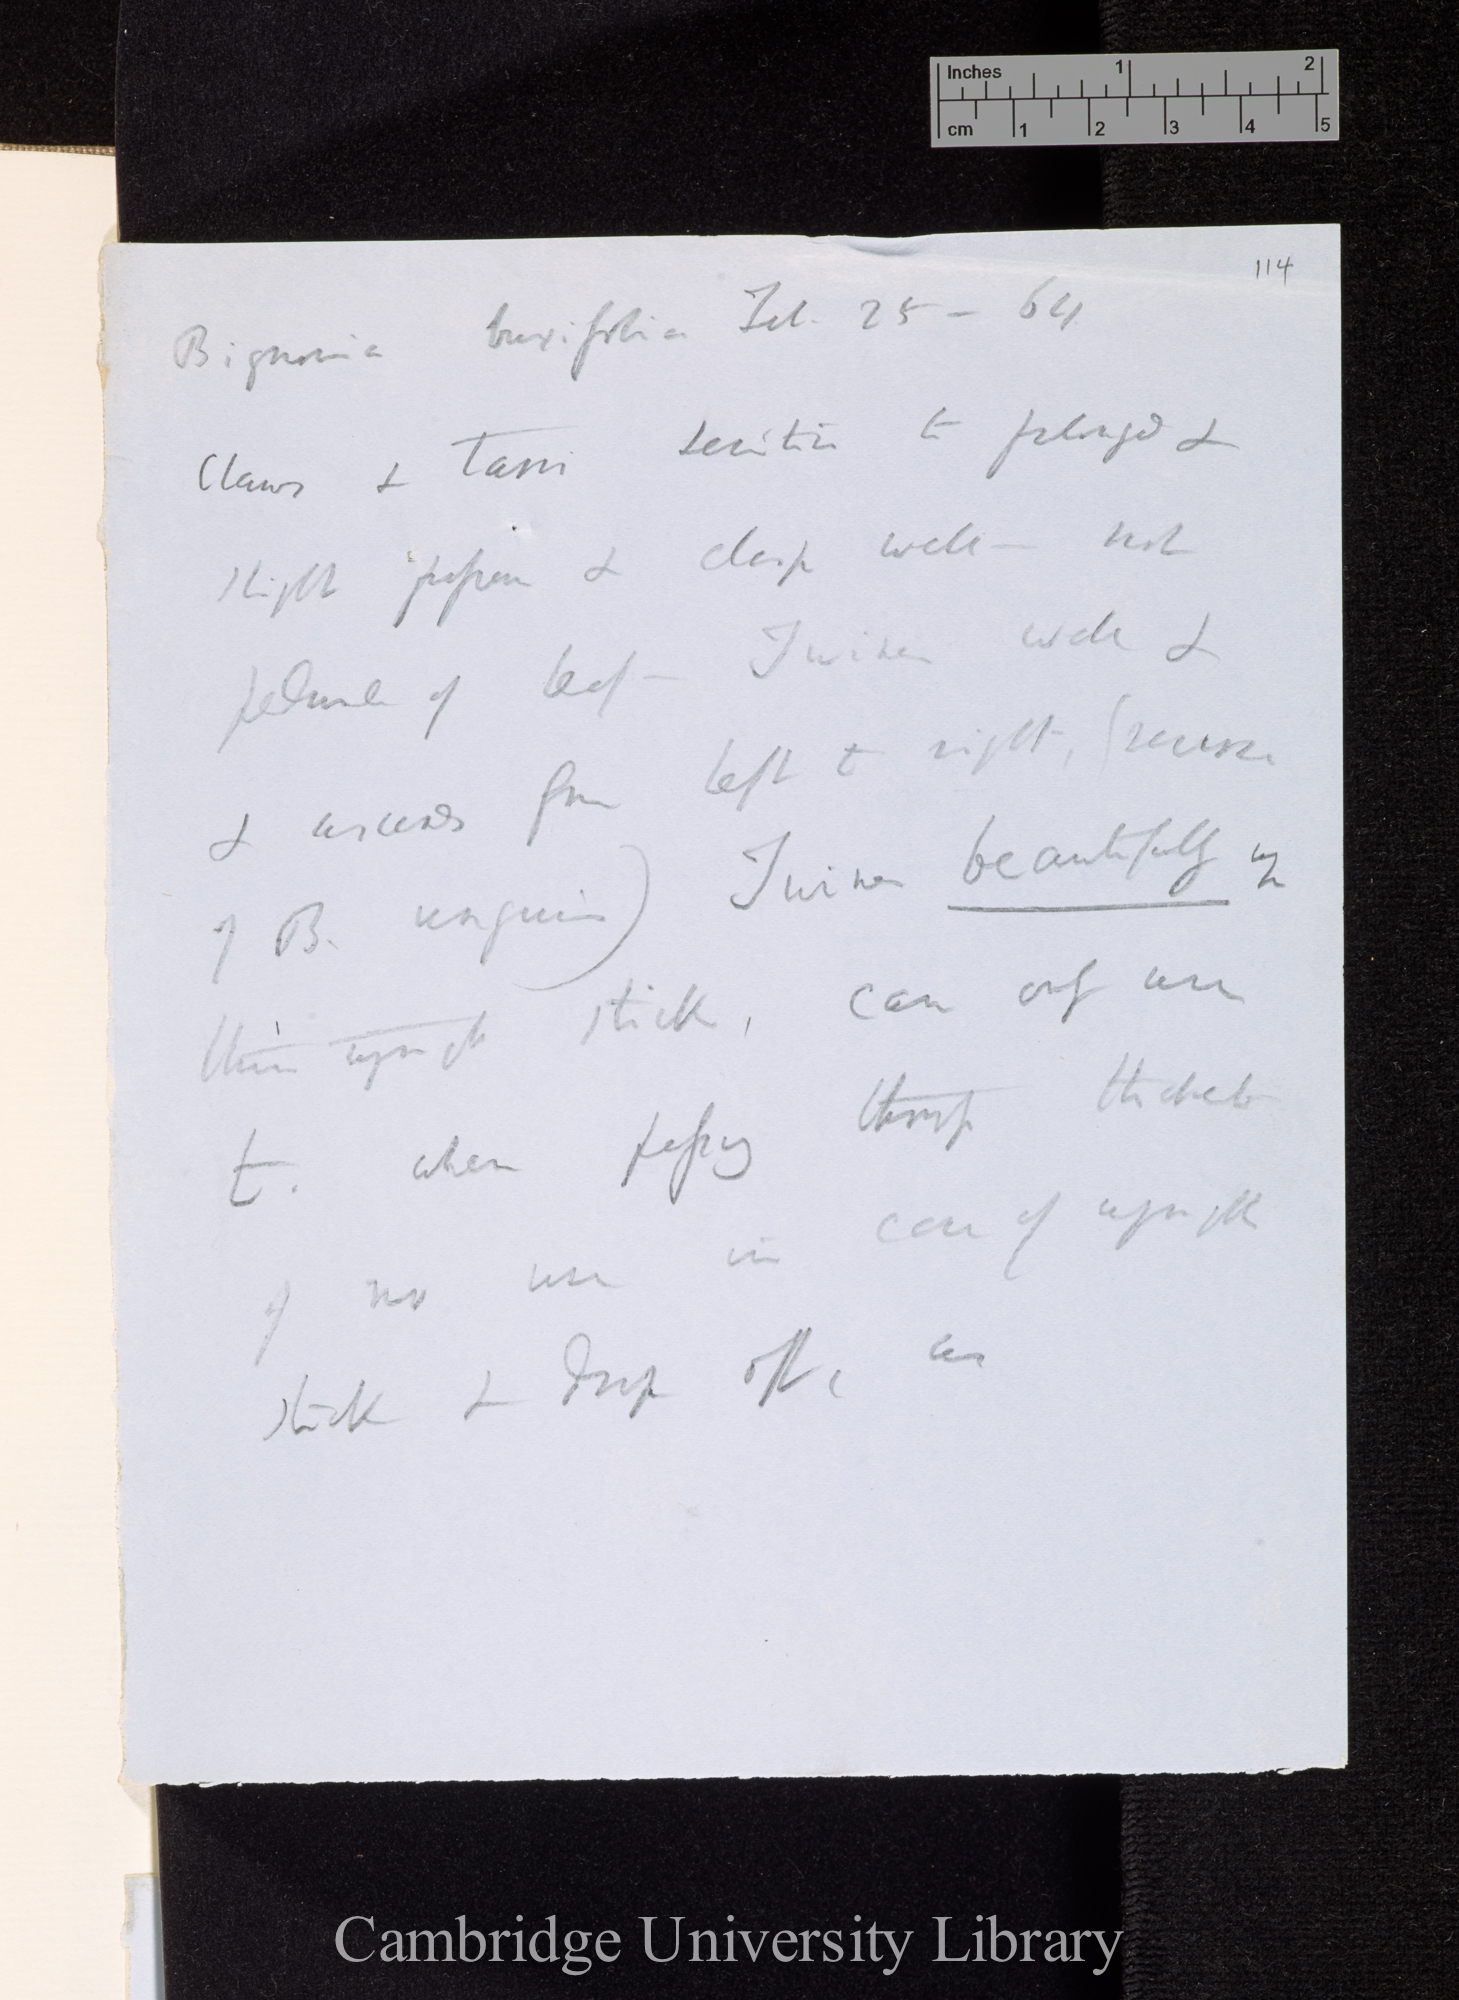 Inches 1 2
cm 1 2 3 4 5
114
Bignonia buxifolia Feb. 25 — 64
Claws & Tarsi sensitive to prolonged &
slight pressure & clasp well — not
petiole of leaf — Twines well &
& ascends from left to right, (reverse
of B. unguis) Twines beautifully up
thin upright stick, can only use
t. when passing through thickets
of no use in case of upright
stick & drop off, as
Cambridge University Library